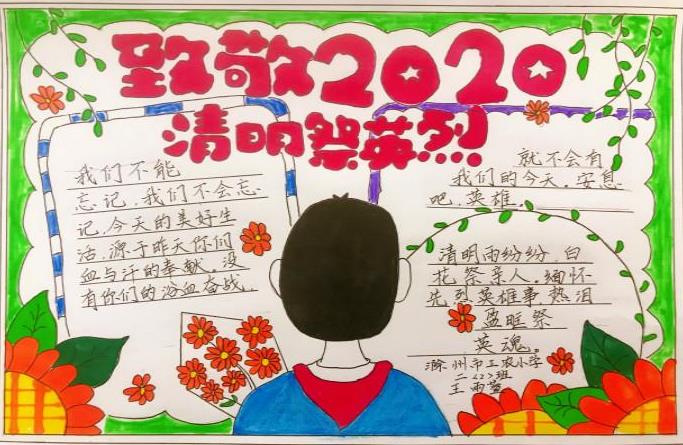 致敬2020
清明祭英烈
我们不能
忘记，我们不会忘
记，今天的美好生
活，源于昨天你们
血与汗的奉献，没
有你们的浴血奋战，
就不会有
我们的今天。安息
吧，英雄。
清明雨纷纷，白
花祭亲人。缅怀
先烈英雄事，热泪
盈眶祭
英魂。
滁州市工农小学
二〈2〉班
王雨萱